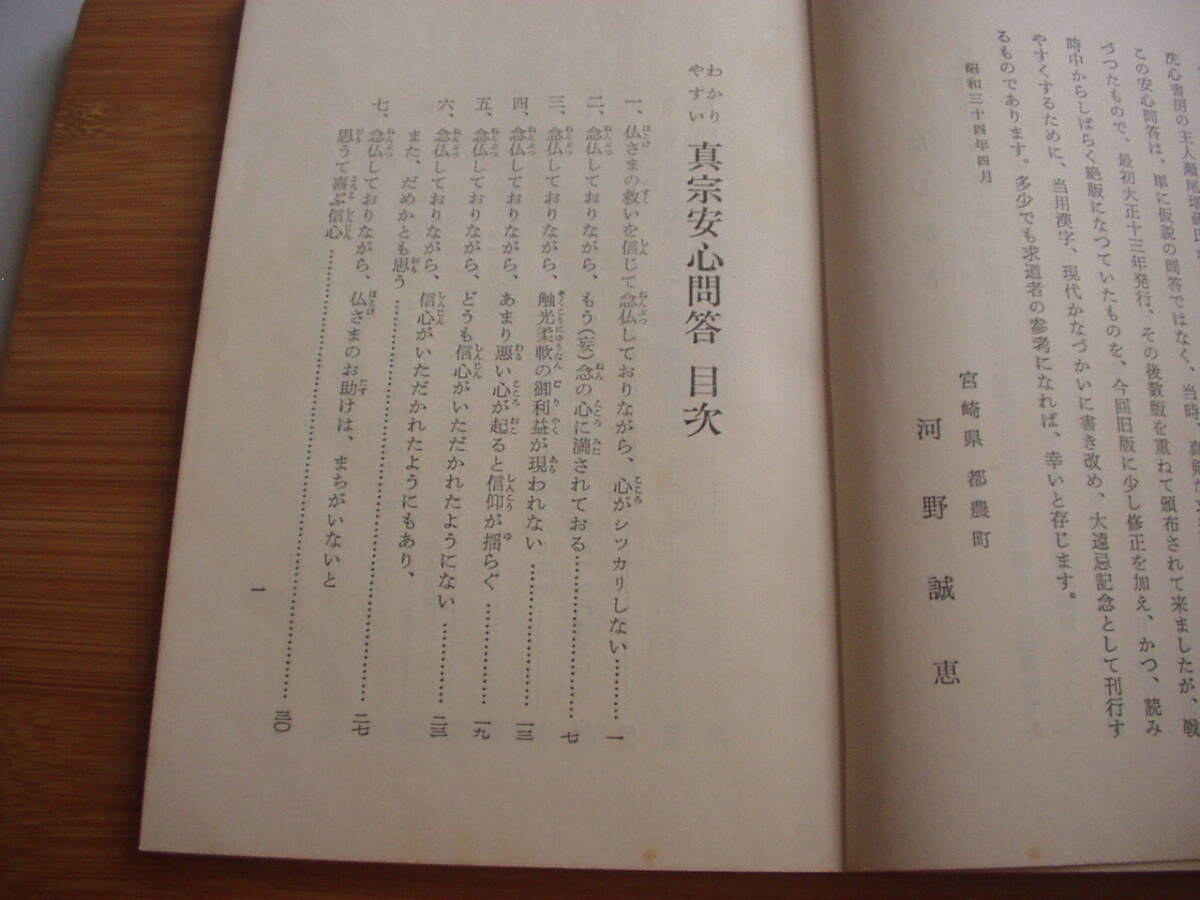 洗心書房の主人
この安心問答は、単に仮説の問答ではなく、当時、
づつたもので、最初大正十三年発行、その後数版を重ねて頒布されて来ましたが、戦
時中からしばらく絶版になつていたものを、今回旧版に少し修正を加え、かつ、読み
やすくするために、当用漢字、現代かなづかいに書き改め、大遠忌記念として刊行す
るものであります。多少でも求道者の参考になれば、幸いと存じます。
昭和三十四年四月
宮崎県都農町
河野誠恵
わかりやすい 真宗安心問答 目次
一、仏さまの救いを信じて念仏しておりながら、心がシツカリしない…………一
二、念仏しておりながら、もう(妄)念の心に満されておる…………七
三、念仏しておりながら、触光柔軟の御利益が現われない…………一三
四、念仏しておりながら、あまり悪い心が起ると信仰が揺らぐ…………一九
五、念仏しておりながら、どうも信心がいただかれたようにない…………二三
六、念仏しておりながら、信心がいただかれたようにもあり、
また、だめかとも思う…………二七
七、念仏しておりながら、仏さまのお助けは、まちがいないと
思うて喜ぶ信心…………三〇
一